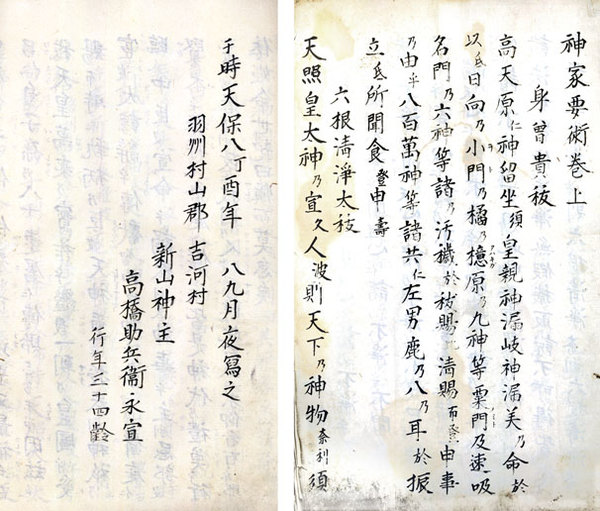 神家要術巻上
身曽貴祓
高天原仁神留坐須皇親神漏岐神漏美乃命於
以氐日向乃小門乃橘乃檍原乃九神等粟門及速吸
名門乃六神等諸乃汚穢於祓賜比清賜百登申事
乃由乎八百萬神等諸共仁左男鹿乃八乃耳於振
立氐所聞食登申壽
六根清淨太祓
天照皇太神乃宣久人波則天下乃神物奈利須
于時天保八丁酉年 八九月夜寫之
羽州村山郡吉河村
新山神主
高橋助兵衞永宣
行年三十四齡